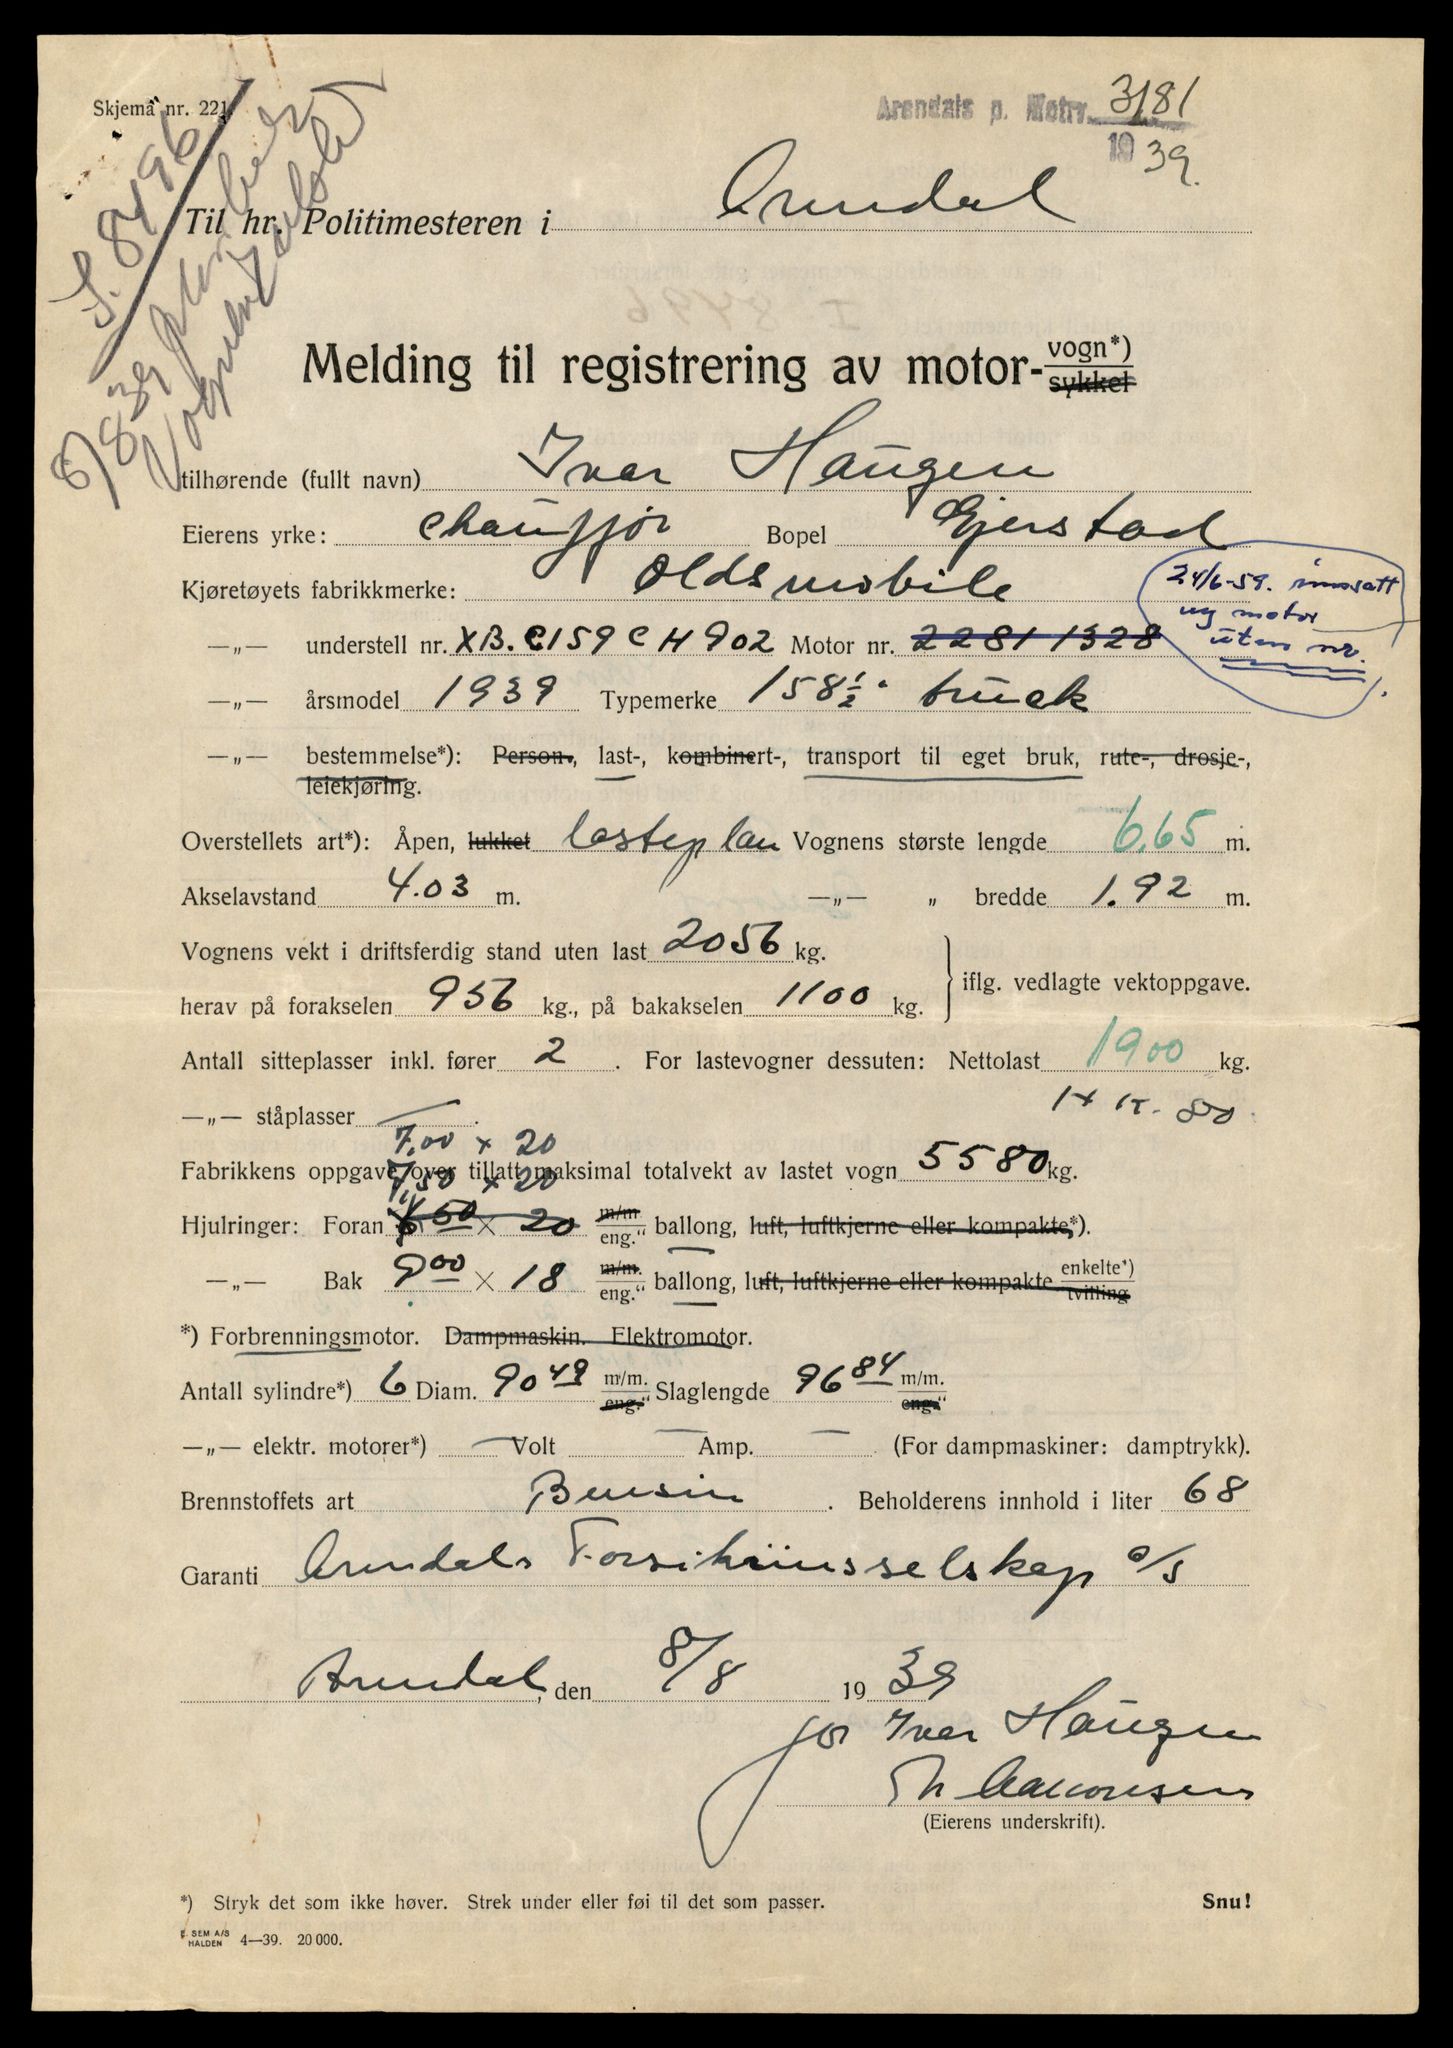 Skjema nr. 221.
Arendals p. Motrv. 3181
1939.
8496
Til hr. Politimesteren i Arendal
Melding til registrering av motor- vogn*) sykkel
tilhørende (fullt navn) Ivar Haugen
Eierens yrke: chauffør Bopel Gjerstad
Kjøretøyets fabrikkmerke: Oldsmobile
24/6-59. innsatt
ny motor
uten nr.
—„— understell nr. XB. C159 C H 902 Motor nr. 2281 1328
—„— årsmodel 1939 Typemerke 158 1/2" truck
—„— bestemmelse*): Person-, last-, kombinert-, transport til eget bruk, rute-, drosje-,
leiekjøring.
Overstellets art*): Åpen, lukket lasteplan Vognens største lengde 6,65 m.
Akselavstand 4.03 m. —„— „ bredde 1.92 m.
Vognens vekt i driftsferdig stand uten last 2056 kg.
herav på forakselen 956 kg., på bakakselen 1100 kg. iflg. vedlagte vektoppgave.
Antall sitteplasser inkl. fører 2 . For lastevogner dessuten: Nettolast 1900 kg.
—„— ståplasser — .
7,00 x 20
Fabrikkens oppgave over tillatt maksimal totalvekt av lastet vogn 5580 kg.
7,50 x 20
Hjulringer: Foran 6 50 × 20 m/m eng." ballong, luft, luftkjerne eller kompakte*).
—„— Bak 9 00 × 18 m/m. eng." ballong, luft, luftkjerne eller kompakte enkelte*) tvilling
*) Forbrenningsmotor. Dampmaskin. Elektromotor.
Antall sylindre*) 6 Diam. 90 49 m/m. eng." Slaglengde 96 84 m/m. eng."
—„— elektr. motorer*) — Volt — Amp. — (For dampmaskiner: damptrykk).
Brennstoffets art Bensin . Beholderens innhold i liter 68
Garanti Arendals Forsikringsselskap a/s
Arendal, den 8/8 1939
for Ivar Haugen
(Eierens underskrift).
*) Stryk det som ikke høver. Strek under eller føi til det som passer. Snu!
E. SEM A/S
HALDEN 4—39. 20 000.